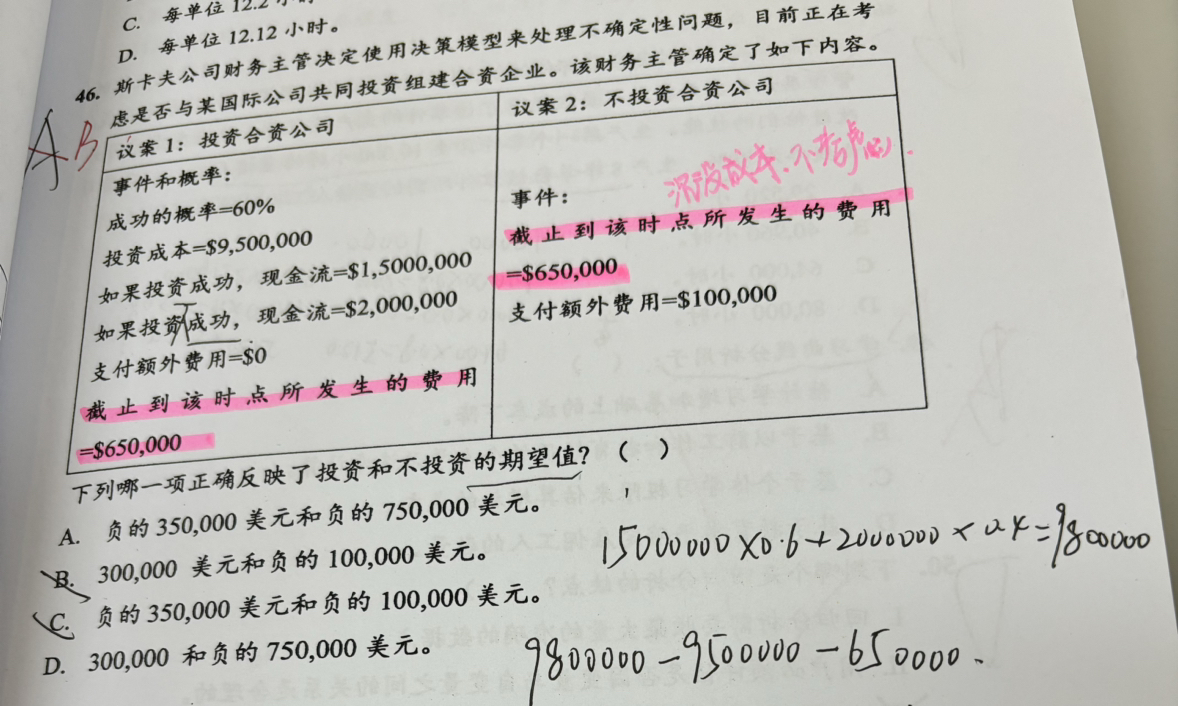 C. 每单位 12.2
D. 每单位 12.12 小时。
46. 斯卡夫公司财务主管决定使用决策模型来处理不确定性问题，目前正在考
虑是否与某国际公司共同投资组建合资企业。该财务主管确定了如下内容。
A B
议案 1：投资合资公司
事件和概率：
成功的概率=60%
投资成本=$9,500,000
如果投资成功，现金流=$1,5000,000
如果投资成功，现金流=$2,000,000
不
支付额外费用=$0
截止到该时点所发生的费用
=$650,000
议案 2：不投资合资公司
沉没成本.不考虑
事件：
截止到该时点所发生的费用
=$650,000
支付额外费用=$100,000
下列哪一项正确反映了投资和不投资的期望值？（ ）
A. 负的 350,000 美元和负的 750,000 美元。
B. 300,000 美元和负的 100,000 美元。
C. 负的 350,000 美元和负的 100,000 美元。
D. 300,000 和负的 750,000 美元。
15000000×0.6+2000000×0.4=9800000
9800000-9500000-650000.